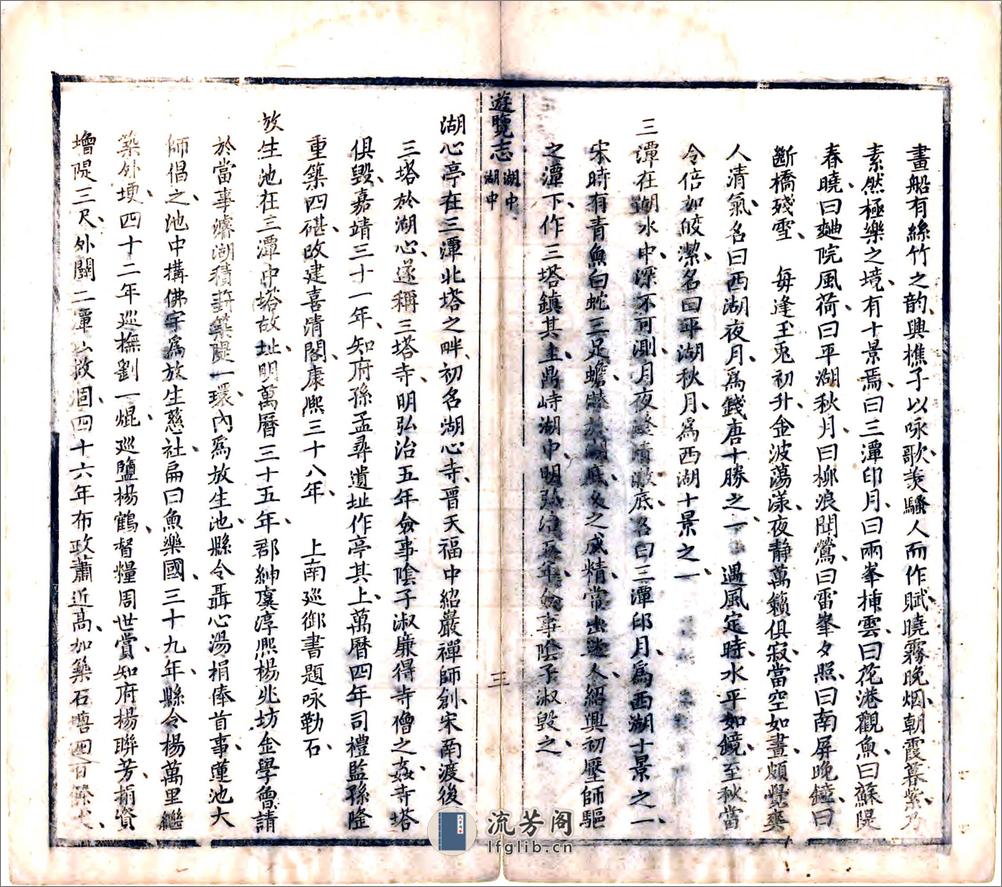 畫船有絲竹之韵與樵子以咏歌羨騷人而作賦曉霧晚烟朝霞暮紫乃
素然極樂之境有十景焉曰三潭印月曰兩峯揷雲曰花港觀魚曰蘇隄
春曉曰麯院風荷曰平湖秋月曰柳浪聞鶯曰雷峯夕照曰南屏晚鐘曰
斷橋殘雪 每逢玉兎初升金波蕩漾夜靜萬籟俱寂當空如晝頗覺爽
人清氣名曰西湖夜月爲錢唐十勝之一 遇風定時水平如鏡至秋當
令倍加皎潔名曰平湖秋月爲西湖十景之一
三潭在湖水中深不可測月夜澄底名曰三潭印月爲西湖十景之一
宋時有青魚白蛇三足蟾湖底久之成精常出人紹興初壓師驅
之潭下作三塔鎮其上鼎峙湖中明弘治五年僉事陰子淑毀之
遊覽志 湖中 湖中
三
湖心亭在三潭北塔之畔初名湖心寺晋天福中紹巖禪師創宋南渡後
三塔於湖心遂稱三塔寺明弘治五年僉事陰子淑廉得寺僧之姦寺塔
俱毀嘉靖三十一年知府孫孟尋遺址作亭其上萬曆四年司禮監孫隆
重築四礎改建喜清閣康熙三十八年 上南巡御書題咏勒石
放生池在三潭中塔故址明萬曆三十五年郡紳虞淳熙楊兆坊金學曾請
於當事濬湖積葑築隄一環內爲放生池縣令聶心湯捐俸首事蓮池大
師倡之池中搆佛宇爲放生慈社扁曰魚樂國三十九年縣令楊萬里繼
築外埂四十二年巡撫劉一焜巡鹽楊鶴督糧周世賞知府楊聯芳捐資
增隄三尺外闢二潭四十六年布政蕭近高加築石塘四百餘丈
流芳阁
lfglib.cn